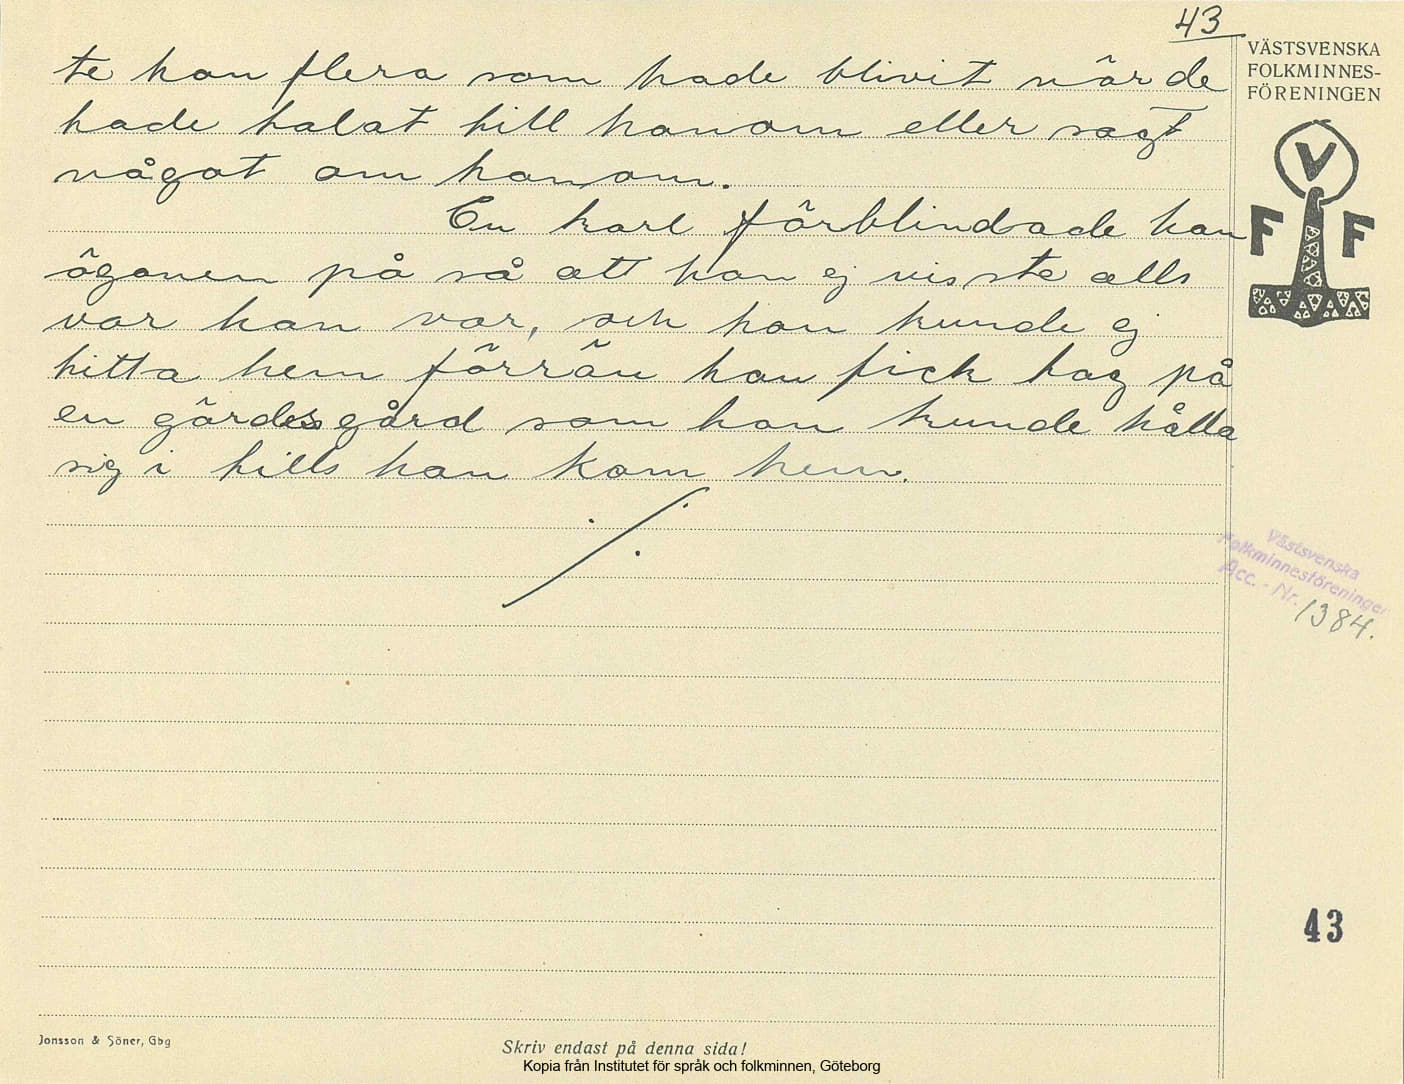 43
VÄSTSVENSKA
FOLKMINNES-
FÖRENINGEN
V
F F
te han flera som hade blivit när de
hade talat till honom eller sagt
något om honom.
En karl förblindsade han
ögonen på så att han ej visste alls
var han var, och han kunde ej
hitta hem förrän han fick tag på
en gärdesgård som han kunde hålla
sig i tills han kom hem.
Västsvenska
Folkminnesföreningen
Acc. - Nr. 1384.
43
Jonsson & Söner, Gbg
Skriv endast på denna sida!
Kopia från Institutet för språk och folkminnen, Göteborg